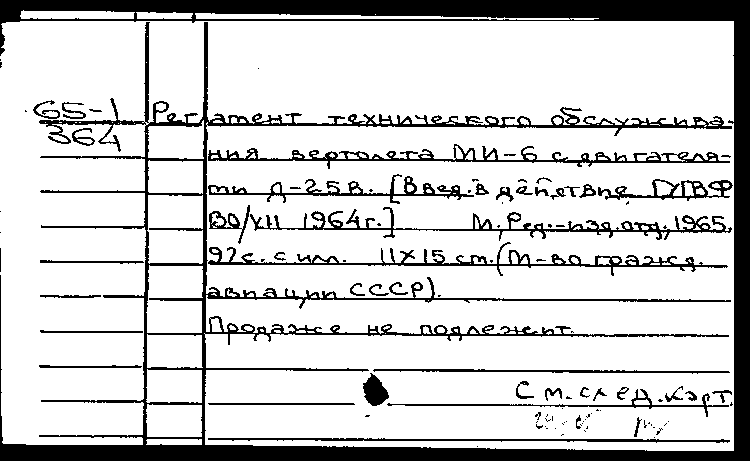 65-1
364
Регламент технического обслужива-
ния вертолета МИ-6 с двигателя-
ми Д-25В. [Введ. в действие ГУГВФ
30/XII 1964г.] М., Ред.-изд. отд., 1965.
97с. с илл. 11X15 см. (М-во гражд.
авиации СССР).
Продаже не подлежит.
См. след. карт.